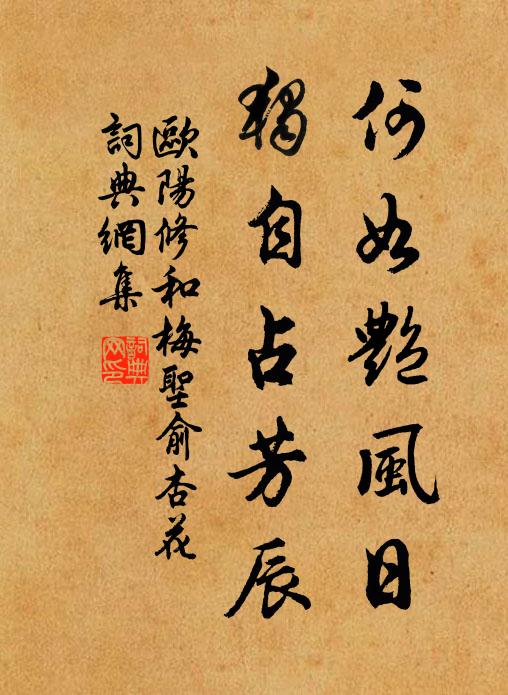 何如艷風日
獨自占芳辰
歐陽修和梅聖俞杏花
詞典網集
詞典
网印